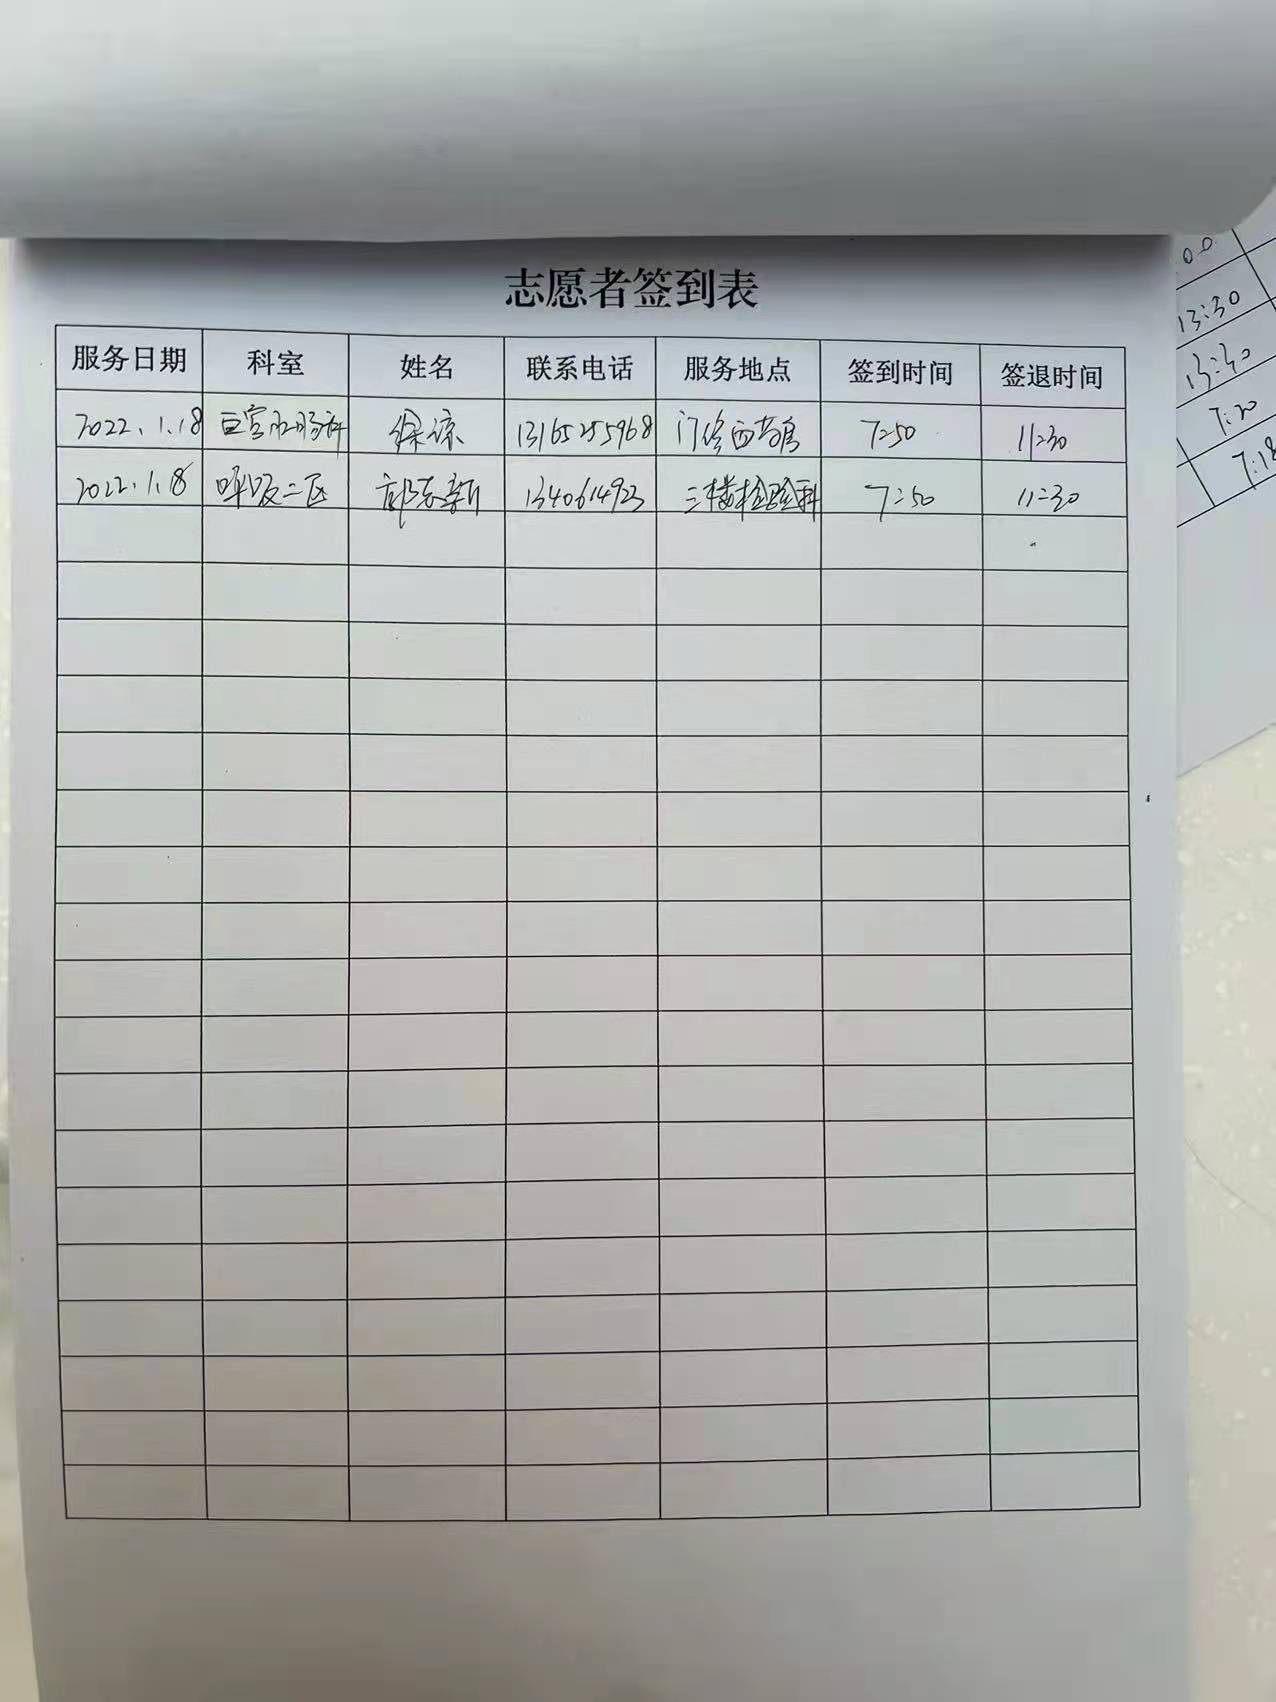 志愿者签到表
服务日期 科室 姓名 联系电话 服务地点 签到时间 签退时间
2022.1.18 徐谅 13165255968 门诊西药房 7:50 11:30
2022.1.18 呼吸二区 1340614923 三楼检验科 7:50 11:30
13:30
13:30
7:20
7:18